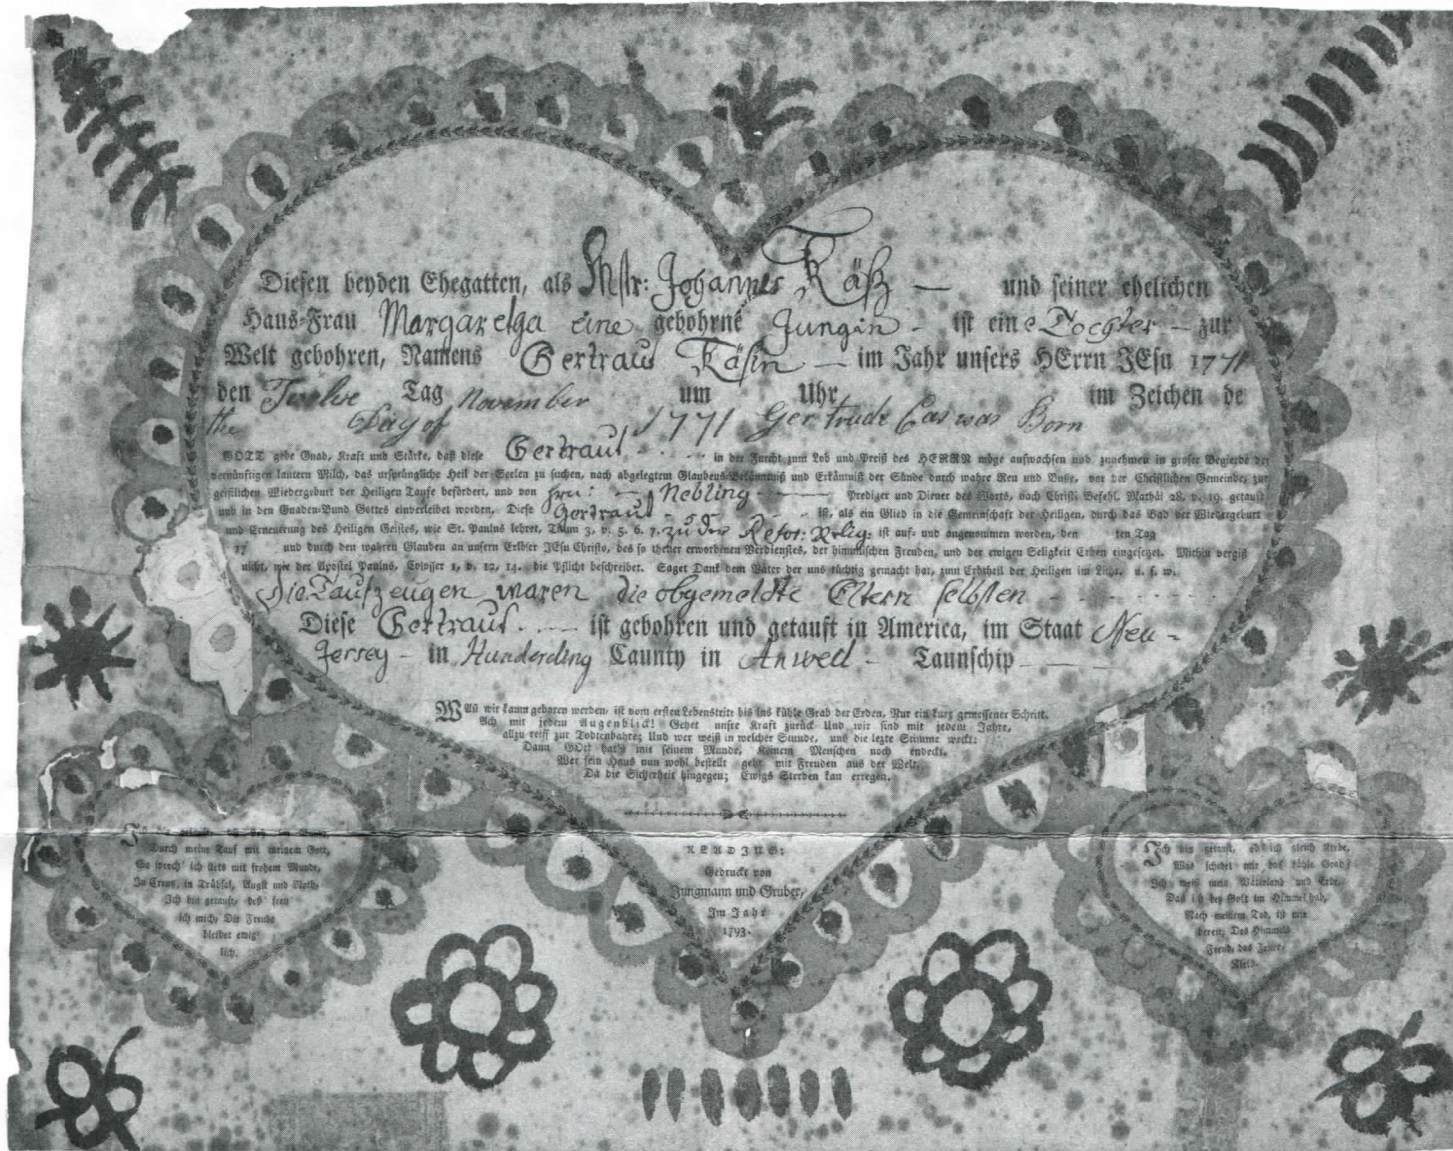 Diesen beyden Ehegatten, als Mstr: Johannes Käß — und seiner ehelichen
Haus-Frau Margaretha eine gebohrne Jungin - ist eine Tochter - zur
Welt gebohren, Namens Gertraut Käsin — im Jahr unsers HErrn JEsu 1771
den Twelve Tag November um Uhr im Zeichen de
the Day of 1771 Gertrude Cas was Born
GOTT gebe Gnad, Kraft und Stärke, daß diese Gertraut - - - in der Furcht zum Lob und Preiß des HERRN möge aufwachsen und zunehmen in groser Begierde der
vernünftigen lautern Milch, das ursprüngliche Heil der Seelen zu suchen, nach abgelegtem Glaubens-Bekänntniß und Erkäntniß der Sünde durch wahre Reu und Busse, vor der Christlichen Gemeinde, zur
geistlichen Wiedergeburt der Heiligen Taufe befördert, und von Hrn: — Nebling — Prediger und Diener des Worts, nach Christi Befehl, Mathäi 28. v. 19. getauft
und in den Gnaden-Bund Gottes einverleibet worden, Diese Gertraut - - - ist, als ein Glied in die Gemeinschaft der Heiligen, durch das Bad der Wiedergeburt
und Erneurung des Heiligen Geistes, wie St. Paulus lehret, Titum 3, v. 5. 6. 7. zu der Refor: Relig: ist auf- und angenommen worden, den ten Tag
17 und durch den wahren Glauben an unsern Erlöser JEsu Christo, des so theuer erworbenen Verdienstes, der himmlischen Freuden, und der ewigen Seligkeit Erben eingesezet. Mithin vergiß
nicht, wie der Apostel Paulus, Colosser 1, v. 12, 14. die Pflicht beschreibet. Saget Dank dem Vater der uns tüchtig gemacht hat, zum Erbtheil der Heiligen im Licht. u. s. w.
Die Taufzeugen waren die obgemeldte Eltern selbsten - - -
Diese Gertraut - — ist gebohren und getauft in America, im Staat Neu-
Jersey - in Hunderding Caunty in Anwell - Taunschip — —
Wann wir kaum geboren werden, ist vom ersten Lebenstritt bis ins kühle Grab der Erden, Nur ein kurz gemessener Schritt.
Ach mit jedem Augenblick! Gehet unsre Kraft zurück Und wir sind mit jedem Jahre,
allzu reiff zur Todtenbahre; Und wer weiß in welcher Stunde, uns die lezte Stimme weckt;
Dann GOtt hat's mit seinem Munde, keinem Menschen noch endeckt.
Wer sein Haus nun wohl bestellt geht mit Freuden aus der Welt.
Da die Sicherheit hingegen; Ewigs Sterben kan erregen.
READING:
Gedruckt von
Jungmann und Gruber,
Im Jahr
1793.
Durch meine Tauf mit meinem Gott,
So sprech' ich stets mit frohem Munde,
In Creuz, in Trübsal, Angst und Noth,
Ich bin getauft, deß' freu
ich mich, Die Freude
bleibet ewig
lich.
Ich bin getauft, ob ich gleich sterbe,
Was schadet mir das kühle Grab?
Ich weiß mein Vaterland und Erbe,
Das ich bey Gott im Himmel hab,
Nach meinem Tod, ist mir
bereit, Des Himmels
Freud, das Feyer-
Kleid.